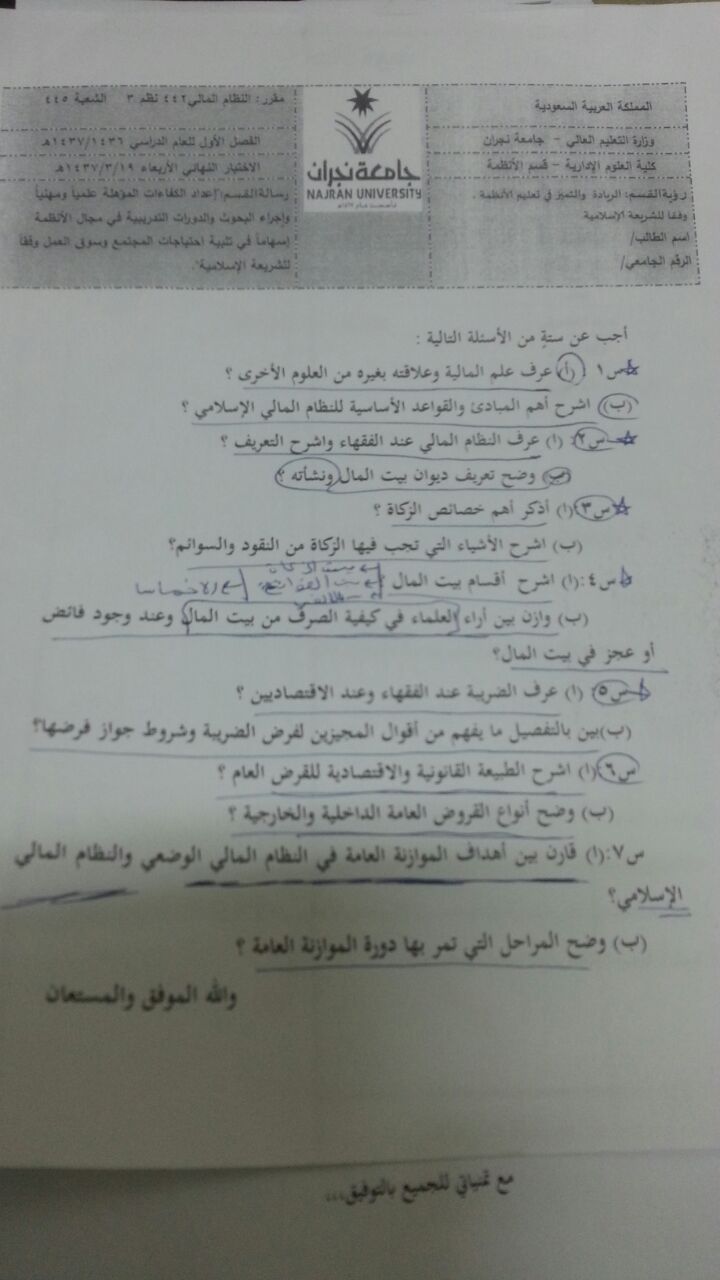 المملكة العربية السعودية
وزارة التعليم العالي - جامعة نجران
كلية العلوم الإدارية - قسم الأنظمة
رؤية القسم: الريادة والتميز في تعليم الأنظمة .
وفقا للشريعة الإسلامية
اسم الطالب/
الرقم الجامعي/
جامعة نجران
NAJRAN UNIVERSITY
مقرر: النظام المالي ٤٤٢ نظم ٣ الشعبة ٤٤٥
الفصل الأول للعام الدراسي ١٤٣٧/١٤٣٦هـ
الاختبار النهائي الأربعاء ١٤٣٧/٣/١٩هـ
رسالة القسم: إعداد الكفاءات المؤهلة علمياً ومهنياً
وإجراء البحوث والدورات التدريبية في مجال الأنظمة
إسهاماً في تلبية احتياجات المجتمع وسوق العمل وفقاً
للشريعة الإسلامية".
أجب عن ستةٍ من الأسئلة التالية :
س١ (أ) عرف علم المالية وعلاقته بغيره من العلوم الأخرى ؟
(ب) اشرح أهم المبادئ والقواعد الأساسية للنظام المالي الإسلامي ؟
س٢: (ا) عرف النظام المالي عند الفقهاء واشرح التعريف ؟
(ب) وضح تعريف ديوان بيت المال ونشأته ؟
س٣:(ا) أذكر أهم خصائص الزكاة ؟
(ب) اشرح الأشياء التي تجب فيها الزكاة من النقود والسوائم؟
س٤:(ا) اشرح أقسام بيت المال
(ب) وازن بين أراء العلماء في كيفية الصرف من بيت المال وعند وجود فائض
أو عجز في بيت المال؟
س٥: (ا) عرف الضريبة عند الفقهاء وعند الاقتصاديين ؟
(ب)بين بالتفصيل ما يفهم من أقوال المجيزين لفرض الضريبة وشروط جواز فرضها؟
س٦:(ا) اشرح الطبيعة القانونية والاقتصادية للقرض العام ؟
(ب) وضح أنواع القروض العامة الداخلية والخارجية ؟
س٧:(ا) قارن بين أهداف الموازنة العامة في النظام المالي الوضعي والنظام المالي
الإسلامي؟
(ب) وضح المراحل التي تمر بها دورة الموازنة العامة ؟
والله الموفق والمستعان
مع تمنياتي للجميع بالتوفيق،،،